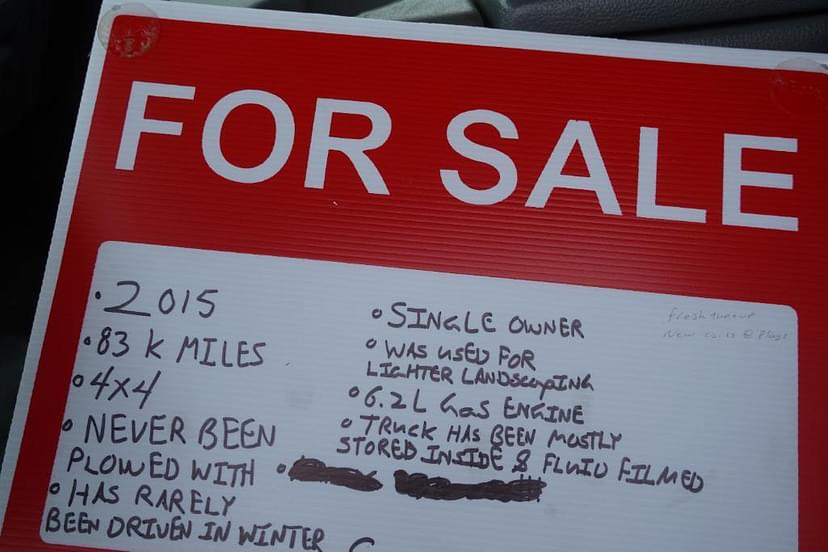 FOR SALE
• 2015
• 83 K MILES
• 4x4
• NEVER BEEN
PLOWED WITH
• HAS RARELY
BEEN DRIVEN IN WINTER
• SINGLE OWNER
• WAS USED FOR
LIGHTER LANDSCAPING
• 6.2L GAS ENGINE
• TRUCK HAS BEEN MOSTLY
STORED INSIDE & FLUID FILMED
fresh tuneup
New coils & Plugs